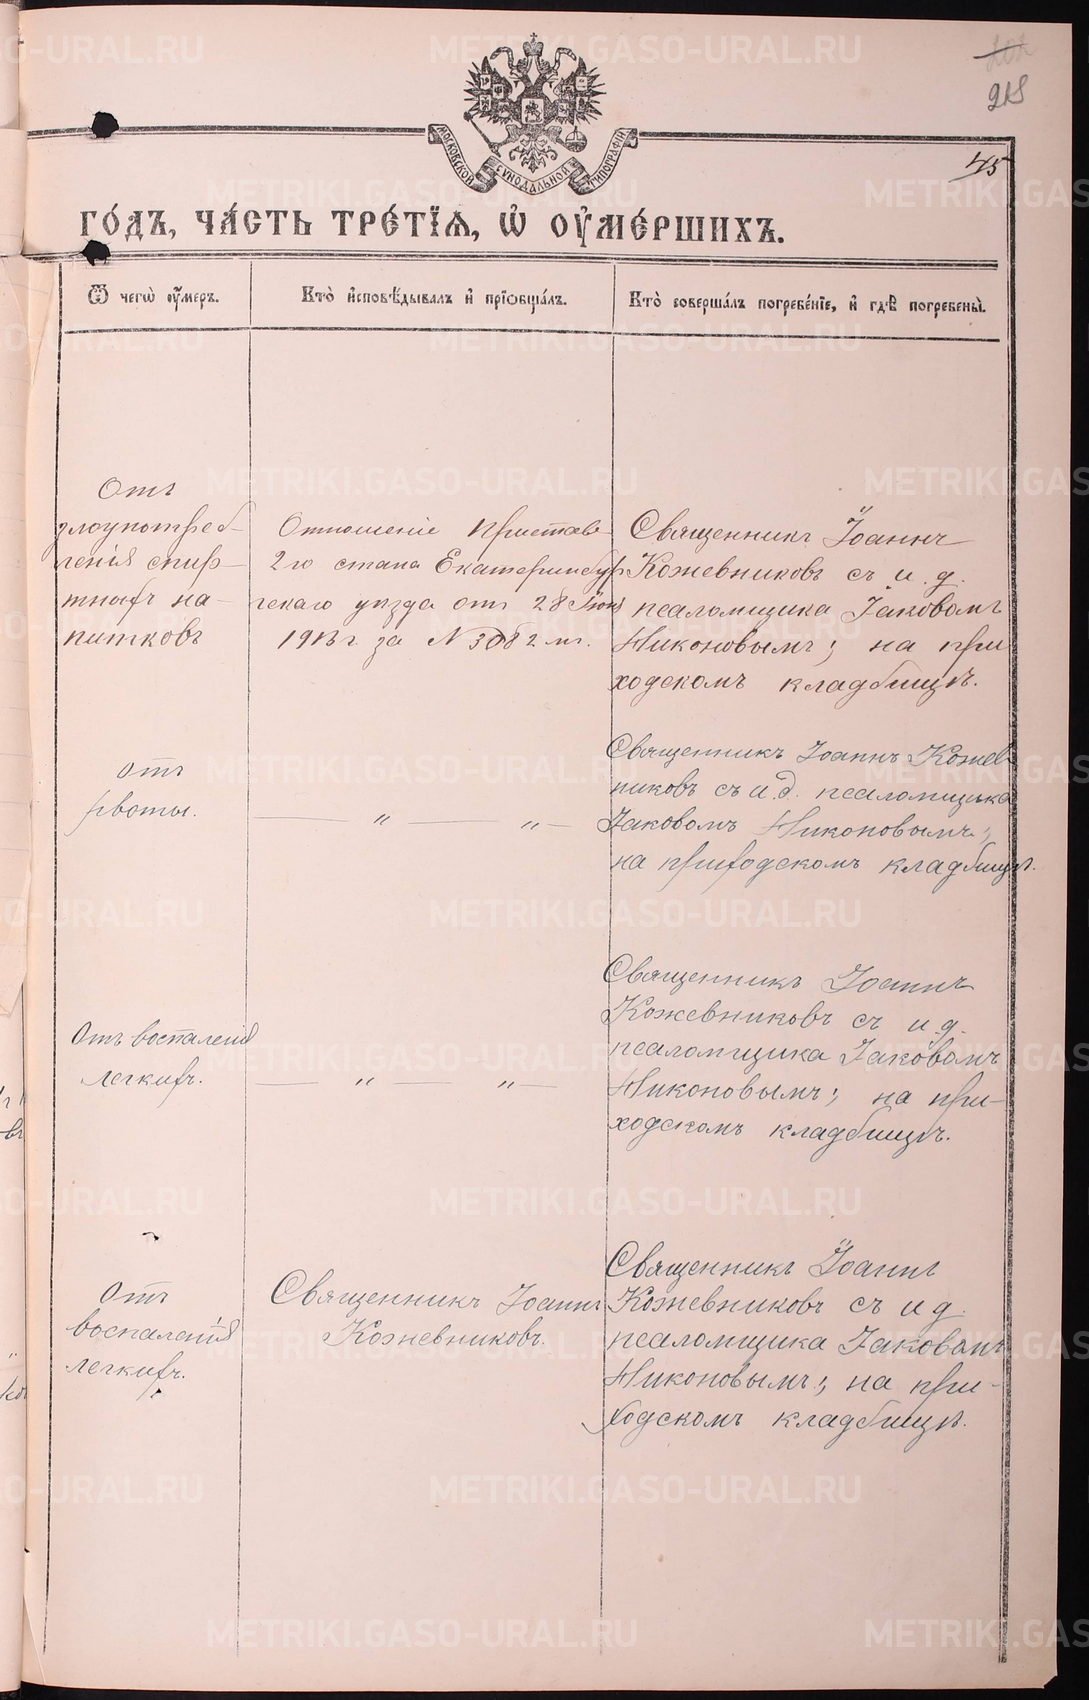 218
45
МОСКОВСКОЙ СѴНОДАЛЬНОЙ ТИПОГРАФІИ
го́дъ, ча́сть тре́тїѧ, ѡ҆ оу҆ме́ршихъ.
Ѿ чегѡ̀ оу҆́меръ.
Кто̀ и҆сповѣ́дывалъ и҆ прїѡбща́лъ.
Кто̀ соверша́лъ погребе́нїе, и҆ гдѣ̀ погребены̀.
Отъ
злоупотреб-
ленія спир-
тныхъ на-
питковъ
Отношеніе Пристава
2го стана Екатеринбур
гскаго уѣзда отъ 28 Іюня
1913 г за N 3082 мъ.
Священникъ Іоаннъ
Кожевниковъ съ и. д.
псаломщика Іаковомъ
Никоновымъ; на при
ходскомъ кладбищѣ.
отъ
рвоты.
— „ — „ —
Священникъ Іоаннъ Кожев
никовъ съ и.д. псаломщика
Іаковомъ Никоновымъ;
на приходскомъ кладбищѣ.
Отъ воспаленія
легкихъ.
— „ — „ —
Священникъ Іоаннъ
Кожевниковъ съ и.д.
псаломщика Іаковомъ
Никоновымъ; на при-
ходскомъ кладбищѣ.
Отъ
воспаленія
легкихъ.
Священникъ Іоаннъ
Кожевниковъ.
Священникъ Іоаннъ
Кожевниковъ съ и д.
псаломщика Іаковомъ
Никоновымъ; на при-
ходскомъ кладбищѣ.
METRIKI.GASO-URAL.RU